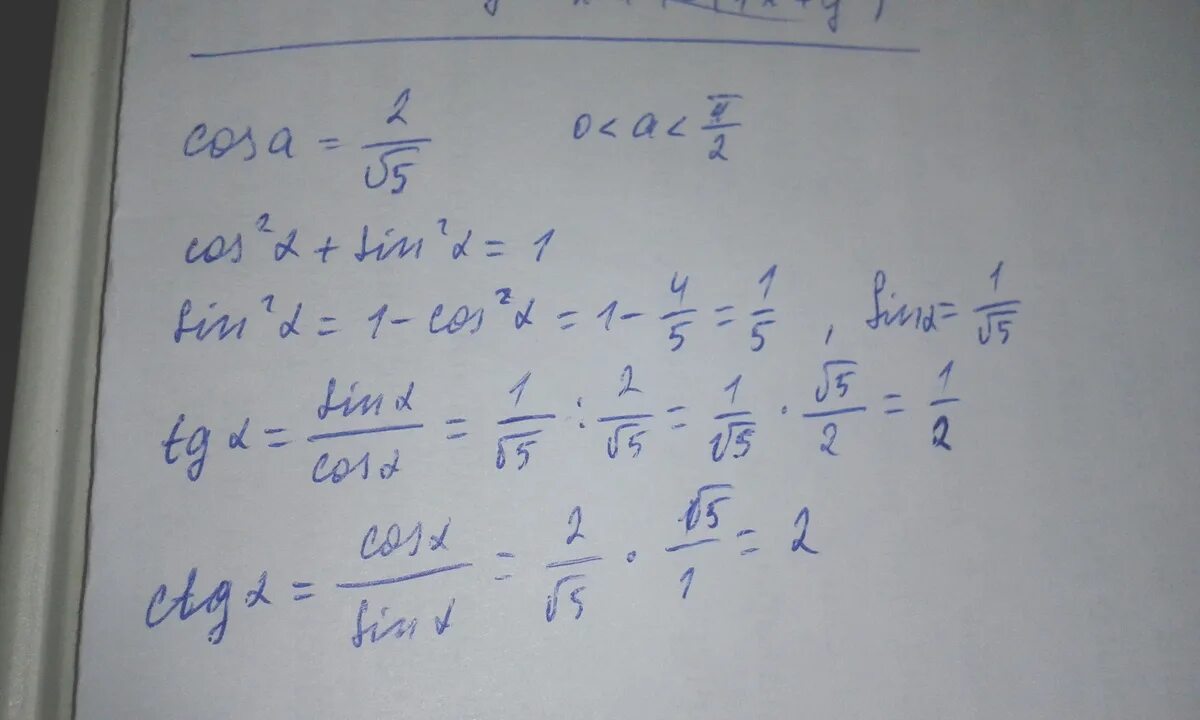 cos a = 2/√5 0 < a < π/2
cos²α + sin²α = 1
sin²α = 1 - cos²α = 1 - 4/5 = 1/5 , sinα = 1/√5
tg α = sinα/cosα = 1/√5 : 2/√5 = 1/√5 · √5/2 = 1/2
ctg α = cosα/sinα = 2/√5 · √5/1 = 2